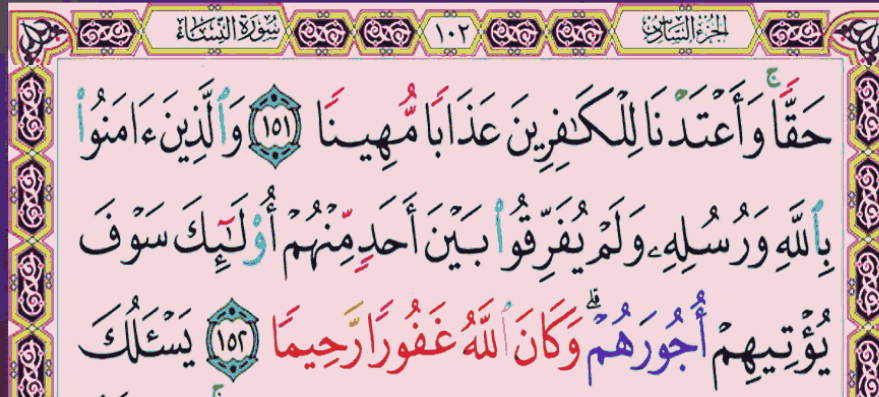 سُورَةُ النِّسَاءِ ١٠٢ الجُزْءُ السَّادِسُ
حَقًّا ۚ وَأَعْتَدْنَا لِلْكَٰفِرِينَ عَذَابًا مُّهِينًا ١٥١ وَٱلَّذِينَ ءَامَنُوا۟
بِٱللَّهِ وَرُسُلِهِۦ وَلَمْ يُفَرِّقُوا۟ بَيْنَ أَحَدٍ مِّنْهُمْ أُو۟لَٰٓئِكَ سَوْفَ
يُؤْتِيهِمْ أُجُورَهُمْ ۗ وَكَانَ ٱللَّهُ غَفُورًا رَّحِيمًا ١٥٢ يَسْـَٔلُكَ